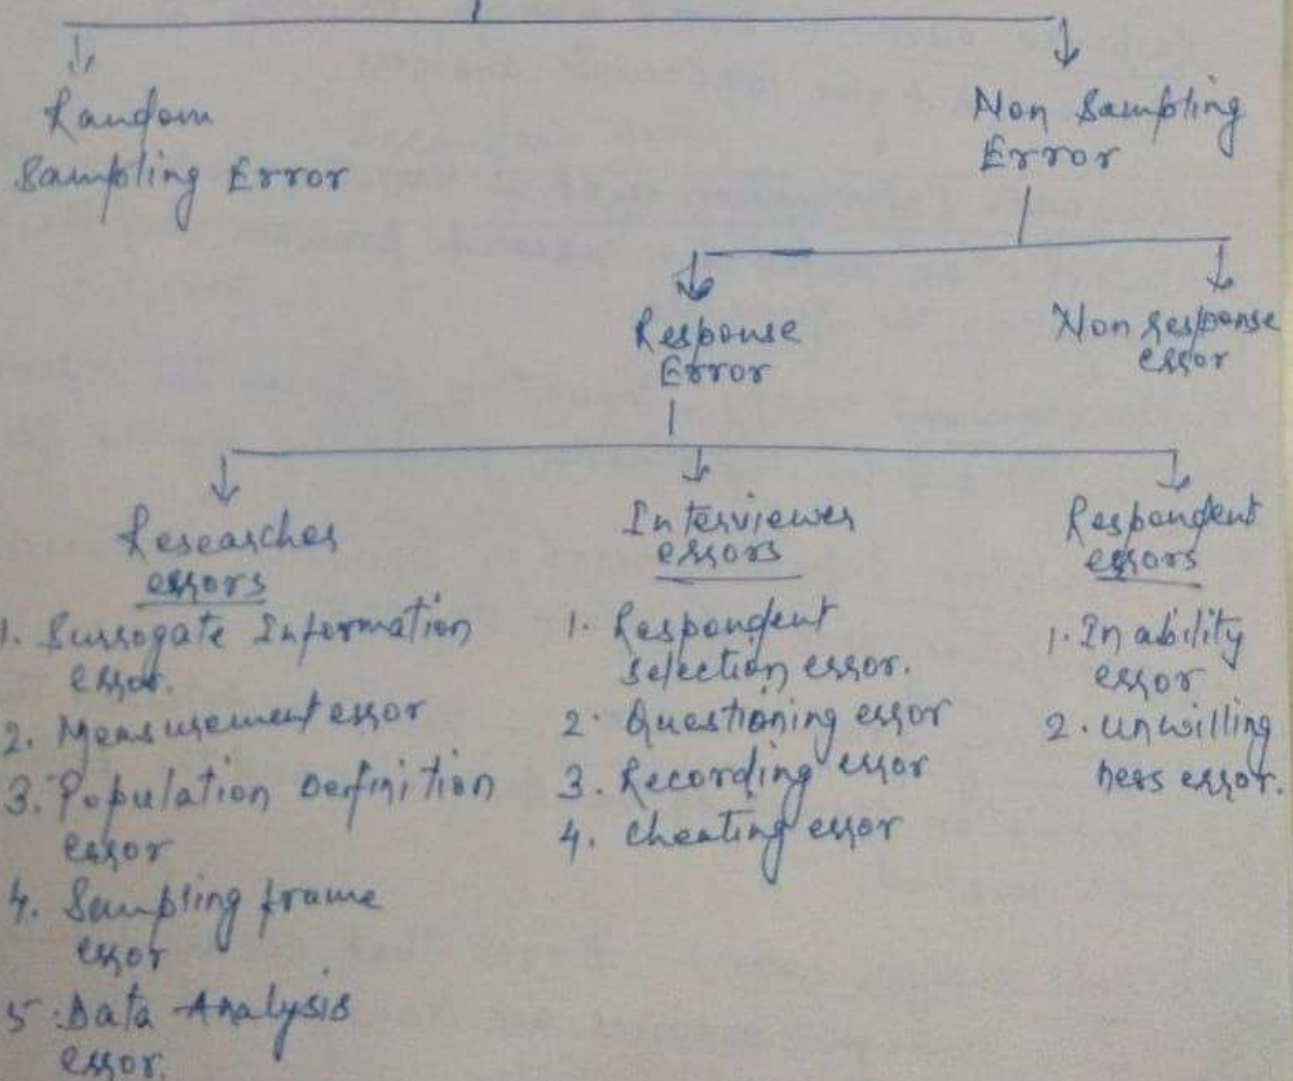 Random
Sampling Error
Non Sampling
Error
Response
Error
Non response
error
Researcher
errors
1. Surrogate Information
error.
2. Measurement error
3. Population Definition
error
4. Sampling frame
error
5. Data Analysis
error.
Interviewer
errors
1. Respondent
selection error.
2. Questioning error
3. Recording error
4. cheating error
Respondent
errors
1. In ability
error
2. unwilling
ness error.